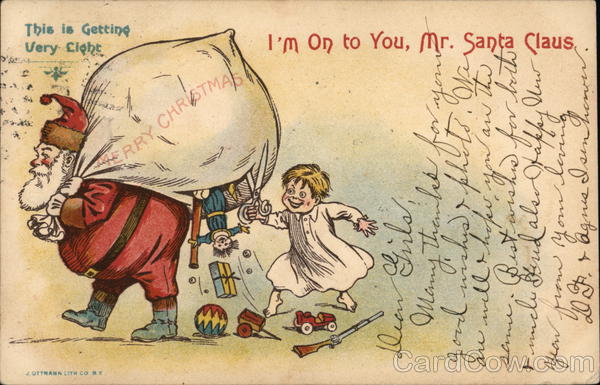 This is Getting
Very Light
I'm On to You, Mr. Santa Claus.
MERRY CHRISTMAS
Dear Girls:
Many thanks for your
good wishes & photo! We
are well & hope you are the
same. Best wishes for both
& Uncle Fred also Happy New
Year from your loving
D.F. & Agnes
J. OTTMANN LITH. CO. N.Y.
CardCow.com